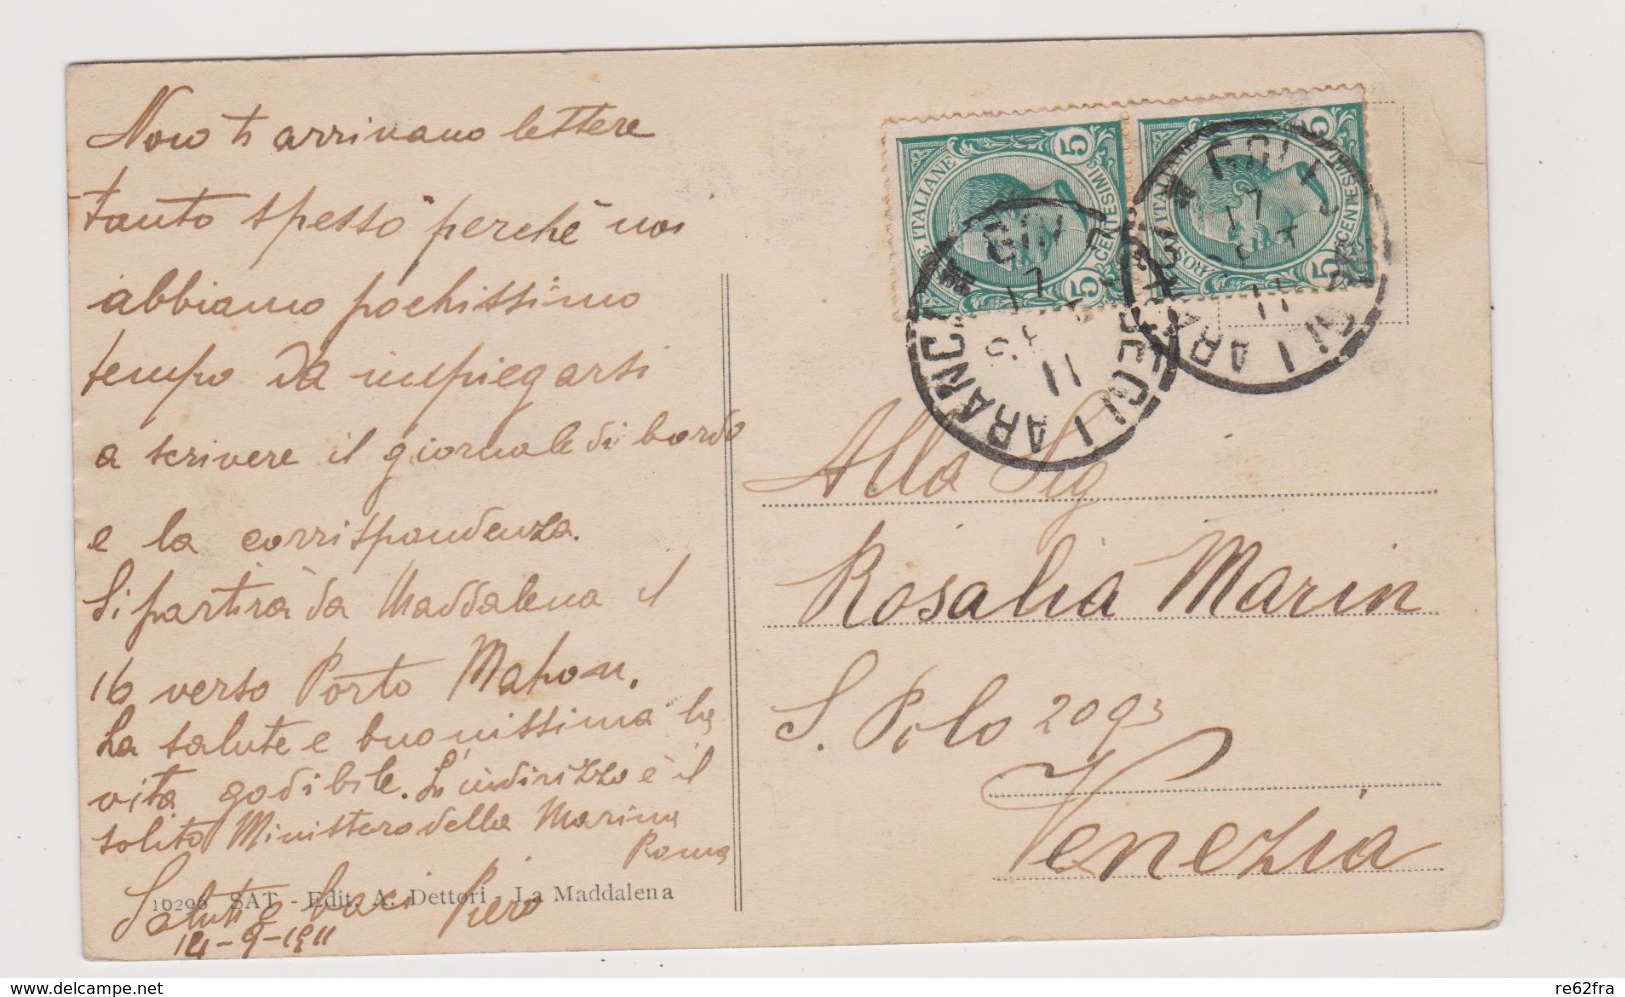 Non ti arrivano lettere
tanto spesso perchè noi
abbiamo pochissimo
tempo da impiegarsi
a scrivere il giornale di bordo
e la corrispondenza.
Si partirà da Maddalena il
16 verso Porto Mahon.
La salute e buonissima la
vita godibile. L'indirizzo è il
solito Ministero della Marina
Roma
Saluti e baci Piero
14-9-1911
10296 SAT - Edit. A. Dettori - La Maddalena
POSTE ITALIANE
CENTESIMI
5
5
POSTE ITALIANE
CENTESIMI
5
5
GOLFO DEGLI ARANCI
17
11
GOLFO DEGLI ARANCI
17
11
Alla Sig
Rosalia Marin
S. Polo 2093
Venezia
re62fra